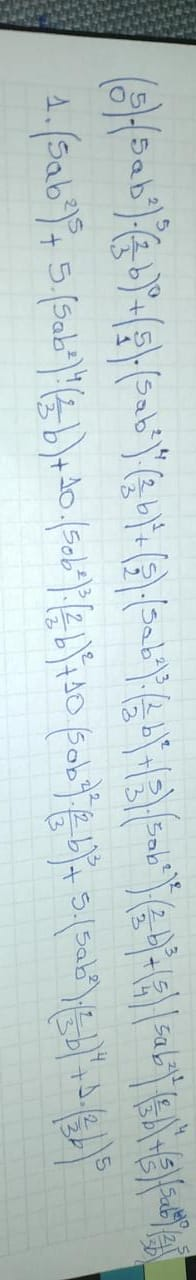 (5 0)·(5ab²)⁵·(2/3 b)⁰ + (5 1)·(5ab²)⁴·(2/3 b)¹ + (5 2)·(5ab²)³·(2/3 b)² + (5 3)(5ab²)²·(2/3 b)³ + (5 4)(5ab²)¹·(2/3 b)⁴ + (5 5)(5ab²)⁰(2/3 b)⁵
1·(5ab²)⁵ + 5·(5ab²)⁴·(2/3 b) + 10·(5ab²)³·(2/3 b)² + 10·(5ab²)²·(2/3 b)³ + 5·(5ab²)·(2/3 b)⁴ + 1·(2/3 b)⁵